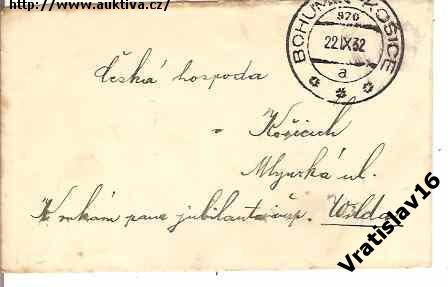 http://www.auktiva.cz/
BOHUMÍN-KOŠICE
870
22.IX.32
a
Česká hospoda
v Košicích
Mlynská ul.
K rukám pana jubilanta insp. Wilda
Vratislav16